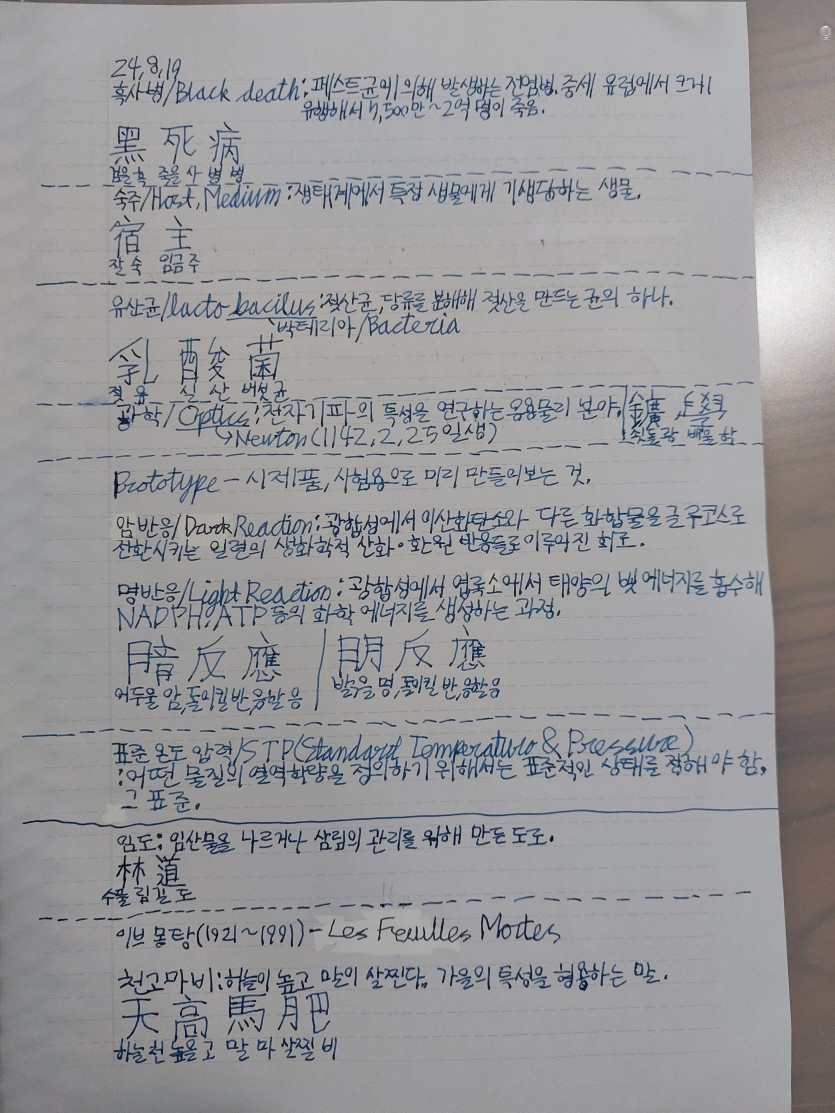 24,8,19
흑사병/Black death: 페스트균에 의해 발생하는 전염병. 중세 유럽에서 크게
유행해서 7,500만~2억 명이 죽음.
黑 死 病
검을 흑 죽을 사 병 병
숙주/Host, Medium: 생태계에서 특정 생물에게 기생당하는 생물.
宿 主
잘 숙 임금 주
유산균/lacto bacilus: 젖산균, 당류를 분해해 젖산을 만드는 균의 하나.
박테리아/Bacteria
乳 酸 菌
젖 유 실 산 버섯 균
광학/Optics: 전자기파의 특성을 연구하는 응용물리 분야.
鑛 學
쇳돌 광 배울 학
Newton(1142,2,25일생)
Prototype - 시제품, 시험용으로 미리 만들어보는 것.
암반응/Dark Reaction: 광합성에서 이산화탄소와 다른 화합물을 글루코스로
전환시키는 일련의 생화학적 산화·환원 반응들로 이루어진 회로.
명반응/Light Reaction: 광합성에서 엽록소에서 태양의 빛 에너지를 흡수해
NADPH와 ATP 등의 화학 에너지를 생성하는 과정.
暗 反 應 明 反 應
어두울 암, 돌이킬 반, 응할 응 밝을 명, 돌이킬 반, 응할 응
표준 온도 압력/STP(Standard Temperature & Pressure)
: 어떤 물질의 열역학량을 정의하기 위해서는 표준적인 상태를 정해야 함,
그 표준.
임도: 임산물을 나르거나 삼림의 관리를 위해 만든 도로.
林 道
수풀 림 길 도
이브 몽탕(1921~1991) - Les Feuilles Mortes
천고마비: 하늘이 높고 말이 살찐다, 가을의 특성을 형용하는 말.
天 高 馬 肥
하늘 천 높을 고 말 마 살찔 비